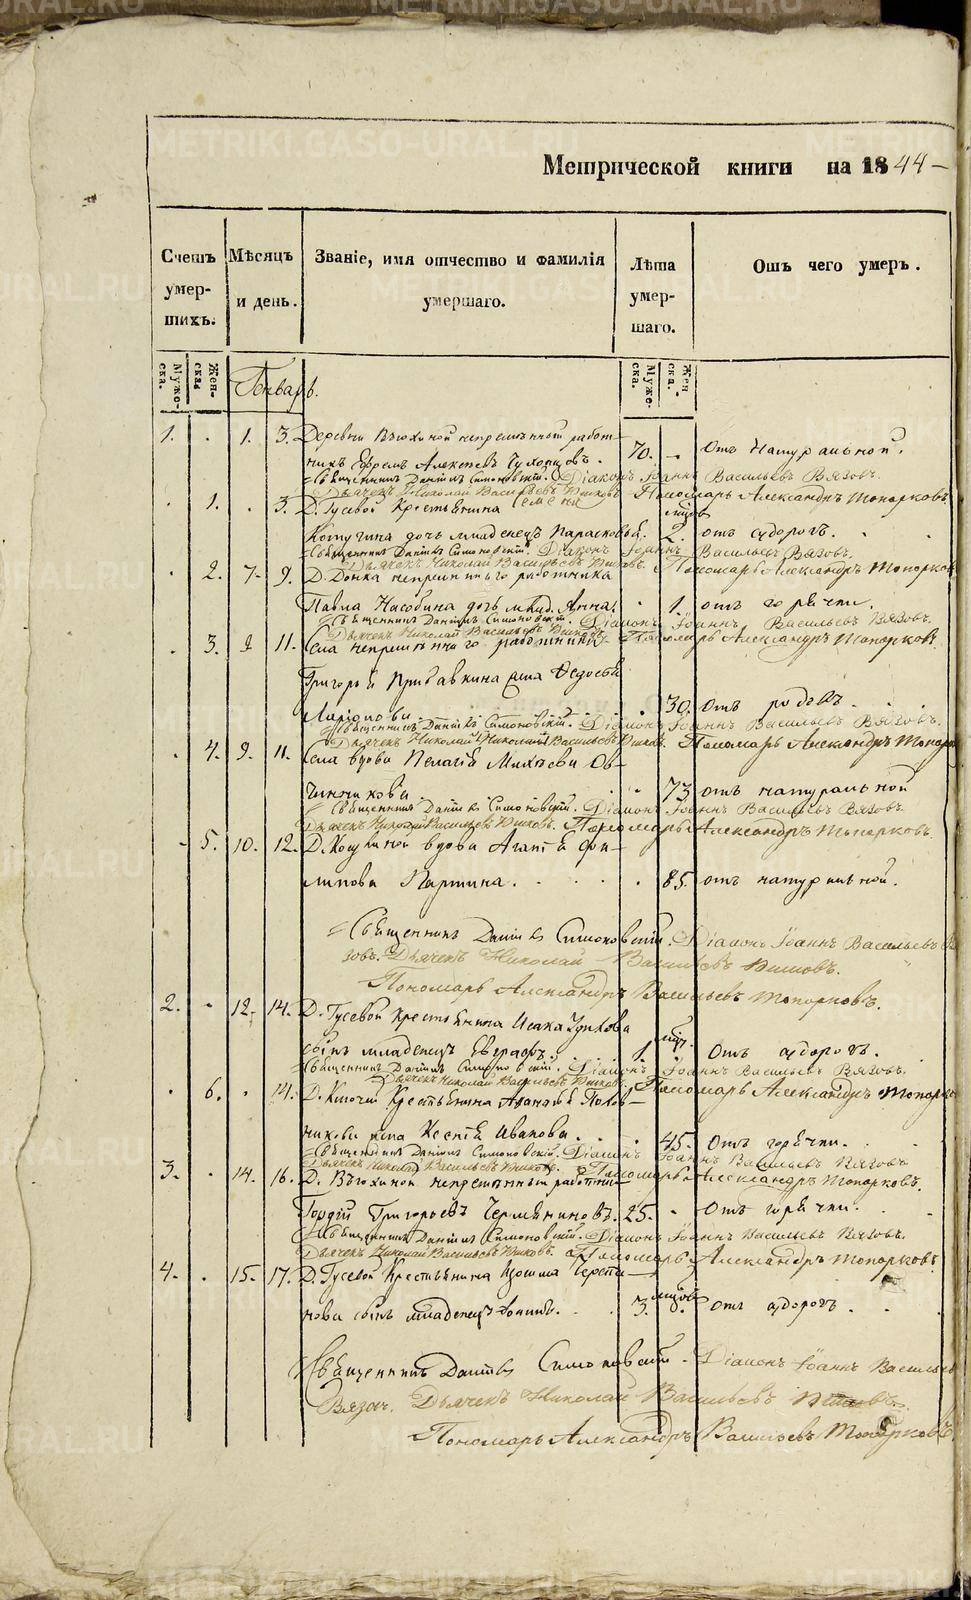 Метрической книги на 1844
Счетъ умер- шихъ.
Мѣсяцъ и день.
Званіе, имя отчество и фамилія умершаго.
Лѣта умер- шаго.
Отъ чего умеръ.
Муже- ска.
Жен- ска.
Муже- ска.
Жен- ска.
Генварь.
1. . 1. 3. Деревни Вьюхиной непремѣнный работ-
никъ Ефремъ Алексѣевъ 70. - отъ натуральной.
Священникъ Даніилъ Симоновскій. Діаконъ Іоаннъ Васильевъ Вязовъ.
Дьячекъ Николай Васильевъ Пономарь Александръ Топорковъ
. 1. . 3. Д. Гусевой Крестьянина Семена
Котугина дочь младенецъ Парасковья. 2. отъ судорогъ.
Священникъ Даніилъ Симоновскій. Діаконъ Іоаннъ Васильевъ Вязовъ.
Дьячекъ Николай Васильевъ Пономарь Александръ Топорков
. 2. 7. 9. Д. непремѣннаго работника
Павла дочь млад. Анна. . 1. отъ горячки.
Священникъ Даніилъ Симоновскій. Діаконъ Іоаннъ Васильевъ Вязовъ.
Дьячекъ Николай Васильевъ Пономарь Александръ Топорковъ.
. 3. 9. 11. Села непремѣннаго работника
Григорья Прибавкина жена Федосья
Ларіонова 30. отъ родовъ.
Священникъ Даніилъ Симоновскій. Діаконъ Іоаннъ Васильевъ Вязовъ.
Дьячекъ Николай Васильевъ Пономарь Александръ Топорк
. 4. 9. 11. Села вдова Пелагія Михѣева Ов-
чинникова 73 отъ натуральной
Священникъ Даніилъ Симоновскій. Діаконъ Іоаннъ Васильевъ Вязовъ.
Дьячекъ Николай Васильевъ Пономарь Александръ Топорковъ.
- 5. 10. 12. Д. вдова Агапія Фи-
липова Паршина. 85. отъ натуральной.
Священникъ Даніилъ Симоновскій. Діаконъ Іоаннъ Васильевъ Вя-
зовъ. Дьячекъ Николай Васильевъ
Пономарь Александръ Васильевъ Топорковъ.
2. . 12. 14. Д. Гусевой Крестьянина Исака
сынъ младенецъ Евграфъ. 1. Отъ судорогъ.
Священникъ Даніилъ Симоновскій. Діаконъ Іоаннъ Васильевъ Вязовъ.
Дьячекъ Николай Васильевъ Пономарь Александръ Топорко
. 6. . 14. Д. Ключи Крестьянина Аѳанасья Полов-
никова жена Ксенія Иванова. 45. Отъ горячки.
Священникъ Даніилъ Симоновскій. Діаконъ Іоаннъ Васильевъ Вязовъ
Дьячекъ Николай Васильевъ Пономарь Александръ Топорковъ.
3. . 14. 16. Д. Вьюхиной непремѣнный работни-
Гордій Григорьевъ Чермяниновъ. 25. . Отъ горячки.
Священникъ Даніилъ Симоновскій. Діаконъ Іоаннъ Васильевъ Вязовъ.
Дьячекъ Николай Васильевъ Пономарь Александръ Топорковъ
4. . 15. 17. Д. Гусевой Крестьянина Черепа-
нова сынъ младенецъ 3. отъ судорогъ.
Священникъ Даніилъ Симоновскій. Діаконъ Іоаннъ Васильев
Вязов. Дьячекъ Николай Васильевъ
Пономарь Александръ Васильевъ Топорковъ.